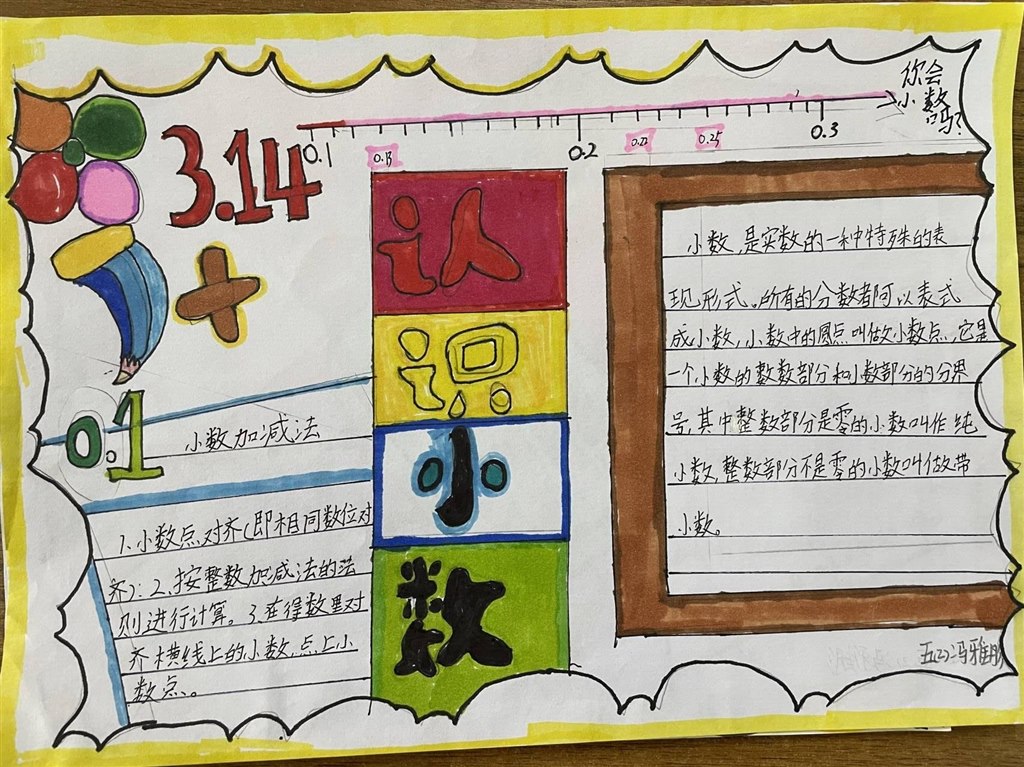 你会
小数
吗?
3.14
0.1
0.13
0.2
0.22
0.25
0.3
认
识
小
数
0.1
小数加减法
1.小数点对齐(即相同数位对
齐):2.按整数加减法的法
则进行计算。3.在得数里对
齐横线上的小数点点上小
数点。
小数,是实数的一种特殊的表
现形式。所有的分数都可以表式
成小数,小数中的圆点叫做小数点,它是
一个小数的整数部分和小数部分的分界
号,其中整数部分是零的小数叫作纯
小数,整数部分不是零的小数叫做带
小数。
五(2)冯雅彤